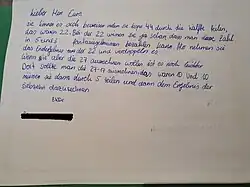 Lieber Herr
sie können es sich bequemer machen sie bspw. 44 durch die Hälfte teilen,
das wären 22. Bei der 22 können sie ja schon dass man diese Zahl
in 5 und bezahlen kann. Also nehmen sie
das Endergebnis von der 22 und verdoppeln es.
Wenn sie aber die 27 ausrechnen wollen ist es noch leichter
Dort sollte man die 27-17 ausrechnen, das wären 10 und 10
müssen sie dann durch 5 teilen und dann dem Ergebnis der
siebzehn dazurechnen